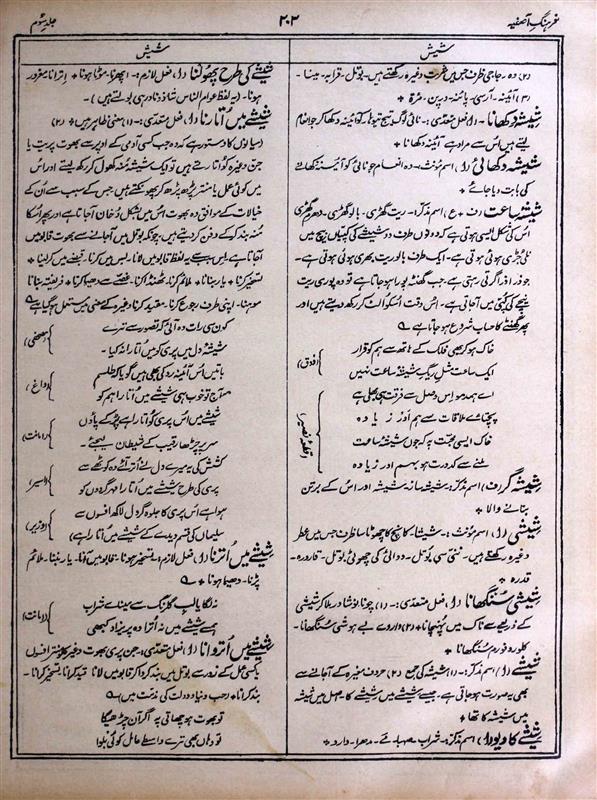 فرہنگِ آصفیہ
۲۰۲
جلد سوم
شیش
شیش
(۲) وہ زجاجی ظرف جس میں عرق وغیرہ رکھتے ہیں۔ بوتل۔ قرابہ۔ مینا۔
(۳) آئینہ۔ آرسی۔ پائنہ۔ درپن۔ مرآۃ +
شیشہ دکھانا (ا) فعل متعدی:۔ نائی لوگ تیج تیوہار کو آئینہ دکھا کر جو انعام
لیتے ہیں اس سے مراد ہے آئینہ دکھانا +
شیشہ دکھائی (ا) اسم مؤنث:۔ وہ انعام جو نائی کو آئینہ دکھانے
کی بابت دیا جائے +
شیشۂ ساعت (ف + ع) اسم مذکر:۔ ریت گھڑی۔ بالو گھڑی۔ دھرم گھڑی
اس کی شکل ایسی ہوتی ہے کہ دونوں طرف دو شیشے کی کپیاں بیچ میں
نلی جڑی ہوئی ہوتی ہے۔ ایک طرف بالو ریت بھری ہوئی ہوتی ہے۔
جو ذرا ذرا گرتی رہتی ہے۔ جب گھنٹہ پورا ہو جاتا ہے تو وہ پوری ریت
نیچے کی کپی میں آجاتی ہے۔ اس وقت اسکو الٹ کر رکھ دیتے ہیں اور
پھر گھنٹے کا حساب شروع ہو جاتا ہے ؎
خاک ہو کر بھی فلک کے ہاتھ سے ہم کو قرار
ایک ساعت مثلِ ریگِ شیشۂ ساعت نہیں
(ذوق)
اے ہمدمو اِس وصل سے فرقت ہی بھلی ہے
پچتائے ملاقات سے ہم اَور زیادہ
خاک ایسی محبت پہ کہ جوں شیشۂ ساعت
ملنے سے کدورت ہو بہم اور زیادہ
شیشہ گر (ف) اسم مذکر:۔ شیشہ ساز۔ شیشہ اور اس کے برتن
بنانے والا +
شیشی (ا) اسم مؤنث:۔ شیشا۔ کانچ کا چھوٹا سا ظرف جس میں عطر
وغیرہ رکھتے ہیں۔ ننّی سی بوتل۔ دوائی کی چھوٹی بوتل۔ قارورہ۔
قدرہ +
شیشی سُنگھانا (ا) فعل متعدی:۔ (۱) چونا نوشادر ملا کر شیشی
کے ذریعے سے ناک میں پہنچانا + (۲) داروے بے ہوشی سُنگھانا۔
کلورو فورم سُنگھانا +
شیشے (ا) اسم مذکر:۔ (۱) شیشہ کی جمع (۲) حروفِ مغیرہ کے آجانے سے
بھی یہ صورت ہوجاتی ہے۔ جیسے شیشے میں
میں شیشہ کا تھا +
شیشے کا دیو (ا) اسم مذکر:۔ شراب۔ صہبا۔ مے۔ مدھرا۔ دارو +
شیشے کی طرح پھولنا (ا) فعل لازم:۔ اپھرنا۔ موٹا ہونا + اِترانا۔ مغرور
ہونا۔ (یہ لفظ عوام الناس شاذ و نادر ہی بولتے ہیں)۔
شیشے میں اُتارنا (ا) فعل متعدی:۔ (۱) (معنی ظاہر ہیں) (۲)
(سیانوں کا دستور ہے کہ وہ جب کسی آدمی کے اوپر سے بھوت پریت یا
جن وغیرہ کو اُتارتے ہیں تو ایک شیشہ مُنہ کھول کر رکھ لیتے اور اُس
میں کوئی عمل یا منتر پڑھ پڑھ کر پھونکتے ہیں جس کے سبب سے اُن کے
خیالات کے موافق وہ بھوت اس میں بشکل دُخان آ جاتا ہے اور پھر اُسکا
مُنہ بند کر کے دفن کر دیتے ہیں چونکہ بوتل میں آجانے سے بھوت قابو میں
آجاتا ہے بس اس سے یہ لفظ قابو میں لانا۔ بس میں کرنا۔ قبضے میں کر لینا +
تسخیر کرنا + یار بنانا + ملائم کرنا۔ ٹھنڈا کرنا۔ غصّے سے دھیما کرنا + فریفتہ بنانا
موہنا۔ اپنی طرف رجوع کرنا۔ مقید کرنا وغیرہ کے معنی میں مستعمل ہو گیا ہے ؎
کون سی رات وہ آئی کہ تصور سے ترے
شیشۂ دل میں پری کو میں اُتارا نہ کیا۔
(مصحفی)
باتیں اُس آئینہ رو کی بھی ہیں گویا کہ طلسم
آج تو خوب ہی شیشے میں اُتارا ہم کو
(داغ)
شیشے میں اس پری کو اُتارا ہے پڑ کے پاؤں
سر پر چڑھا رقیب کے شیطان لیجئے۔
(امانت)
کشش کی میرے دل نے اُتر آئے وہ کوٹھے سے
پری کی طرح شیشے میں اُتارا مہر گردوں کو
(اسیر)
ہوا ہے اس پری کا جلوہ گر دل لاکھ افسوں سے
سلیماں کی قسم دیدے کے شیشے میں اُتارا ہے
(وزیر)
شیشے میں اُترنا (ا) فعل لازم:۔ تسخیر ہونا۔ قابو میں آنا۔ یار بننا۔ ملائم
پڑنا۔ دھیما ہونا + ؎
نہ لگا یا لب گلرنگ سے مینائے شراب
میرے شیشے میں نہ اُترا وہ پریزاد کبھی
(امانت)
شیشے میں اُتروانا (ا) فعل متعدی:۔ جن پری بھوت وغیرہ کا منتر افسوں
یا کسی عمل کے زور سے بوتل میں بند کروا کر قابو میں لانا۔ قید کرانا۔ تسخیر کرانا۔
بند کرانا + (حبِ دنیا و دولت کی مذمت میں) ؎
تو بھوت ہو چھاتی پہ اگر آن چڑھیگا
تو وہاں بھی ترے واسطے عامل کوئی بلوا